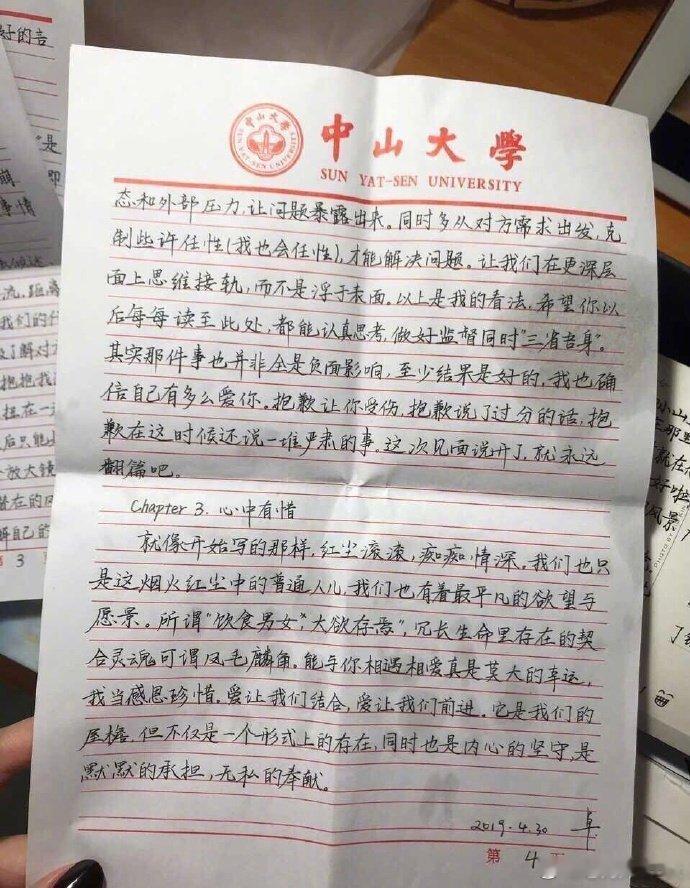 中山大學
SUN YAT-SEN UNIVERSITY
态和外部压力,让问题暴露出来。同时多从对方需求出发,克
制些许任性(我也会任性),才能解决问题。让我们在更深层
面上思维接轨,而不是浮于表面。以上是我的看法,希望你以
后每每读至此处,都能认真思考,做好监督同时"三省吾身"。
其实那件事也并非全是负面影响,至少结果是好的,我也确
信自己有多么爱你。抱歉让你受伤,抱歉说了过分的话,抱
歉在这时候还说一堆严肃的事。这次见面说开了,就永远
翻篇吧。
Chapter 3. 心中有惜
就像开始写的那样,红尘滚滚,痴痴情深。我们也只
是这烟火红尘中的普通人儿,我们也有着最平凡的欲望与
愿景。所谓"饮食男女","大欲存焉",冗长生命里存在的契
合灵魂可谓凤毛麟角。能与你相遇相爱真是莫大的幸运,
我当感恩珍惜。爱让我们结合,爱让我们前进。它是我们的
屋檐,但不仅是一个形式上的存在,同时也是内心的坚守,是
默默的承担,无私的奉献。
2019.4.30 卓
第 4
好的
是
崩
事情
流,距离
我们的
了解对
抱抱我
扭在一
后只能
放大镜
潜在的风
解自己的
第 3
小山
风景